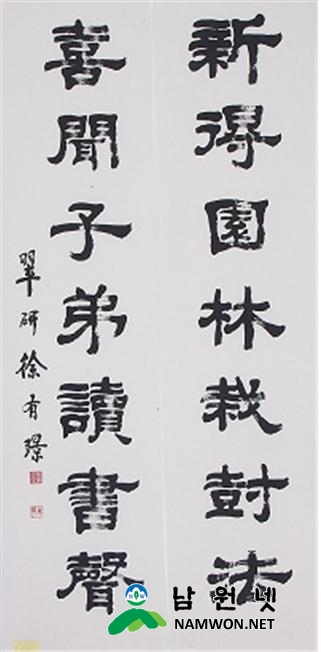 新得園林栽封法
喜聞子弟讀書聲
翠硏徐有璟
남원넷
NAMWON.NET